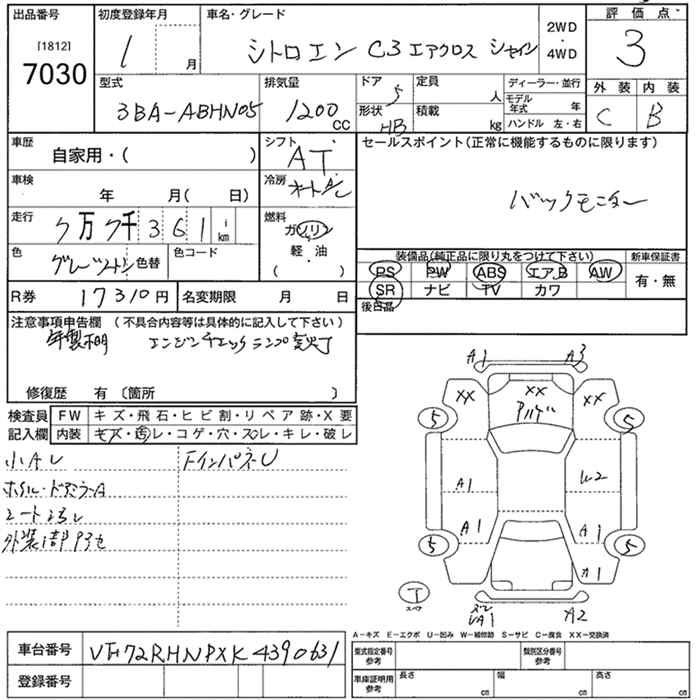 出品番号
[1812]
7030
初度登録年月
1 月
車名・グレード
シトロエン C3 エアクロス シャイン
2WD
・
4WD
評価点
3
型式
3BA-ABHN05
排気量
1200 CC
ドア
5
形状
HB
定員
人
積載
kg
ディーラー・並行
モデル年式 年
ハンドル 左・右
外装 内装
C B
車歴
自家用・( )
シフト
AT
セールスポイント(正常に機能するものに限ります)
バックモニター
車検
年 月( 日)
冷房
オートAC
走行
7万7千361 i km
燃料
ガソリン
軽・油
・
( )
色
色替
色コード
装備品(純正品に限り丸をつけて下さい)
新車保証書
PS PW ABS エアB AW
SR ナビ TV カワ
有・無
R券
17310円
名変期限 月 日
後日品
注意事項申告欄 (不具合内容等は具体的に記入して下さい)
年製不明 エンジンチェックランプ点灯
修復歴 有 〔箇所 〕
検査員記入欄
FW キズ・飛石・ヒビ割・リペア跡・X要
内装 キズ・汚レ・コゲ・穴・スレ・キレ・破レ
小Aレ
FインパネU
ホイル・ドアミラーA
シートヨゴレ
A1 A3
XX XX XX
5 5
A1
A1 A1
5 5
A1
A2
A-キズ E-エクボ U-凹み W-補修跡 S-サビ C-腐食 XX-交換済
車台番号
VF72RHNPXK4390631
登録番号
型式指定番号
参考
類別区分番号
参考
車庫証明用
参考
長さ cm
幅 cm
高さ cm